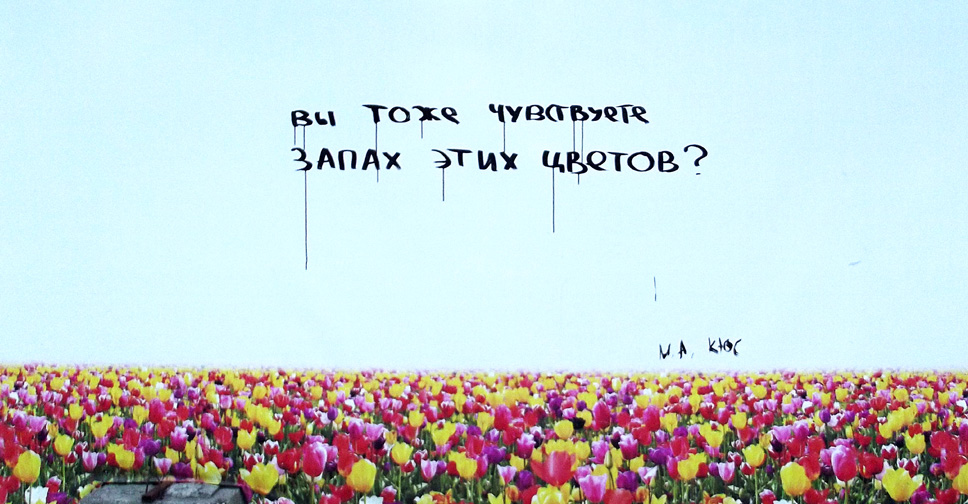 ВЫ ТОЖЕ ЧУВСТВУЕТЕ
ЗАПАХ ЭТИХ ЦВЕТОВ?
М.А. КЮС